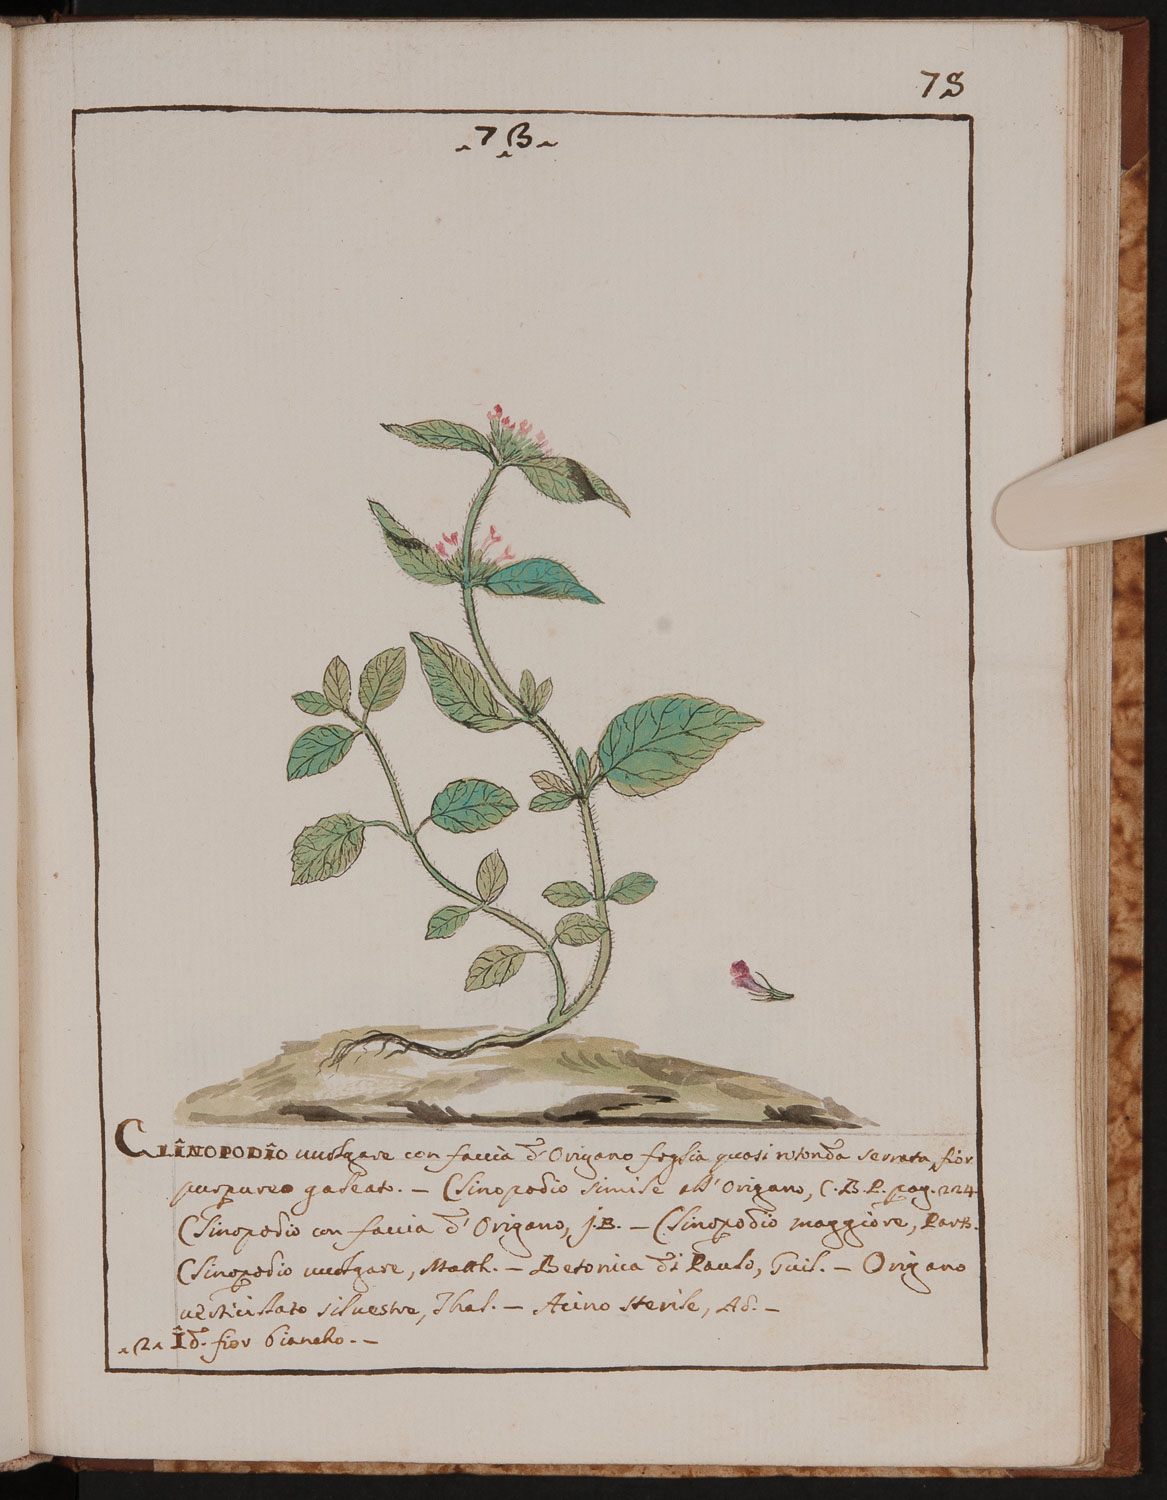 78
7 B
CLÎNOPODÎO uulgare con faccia d'Origano foglia quasi rotonda serrata, fior
purpureo galeato. – Clinopodio simile all'Origano, C.B.P. pag. 224.
Clinopodio con faccia d'Origano, J.B. – Clinopodio maggiore, Park.
Clinopodio uulgare, Matth. – Betonica di Paulo, Guil. – Origano
uerticillato siluestre, Thal. – Acino sterile, Ad. –
2 Îd. fior biancho. –